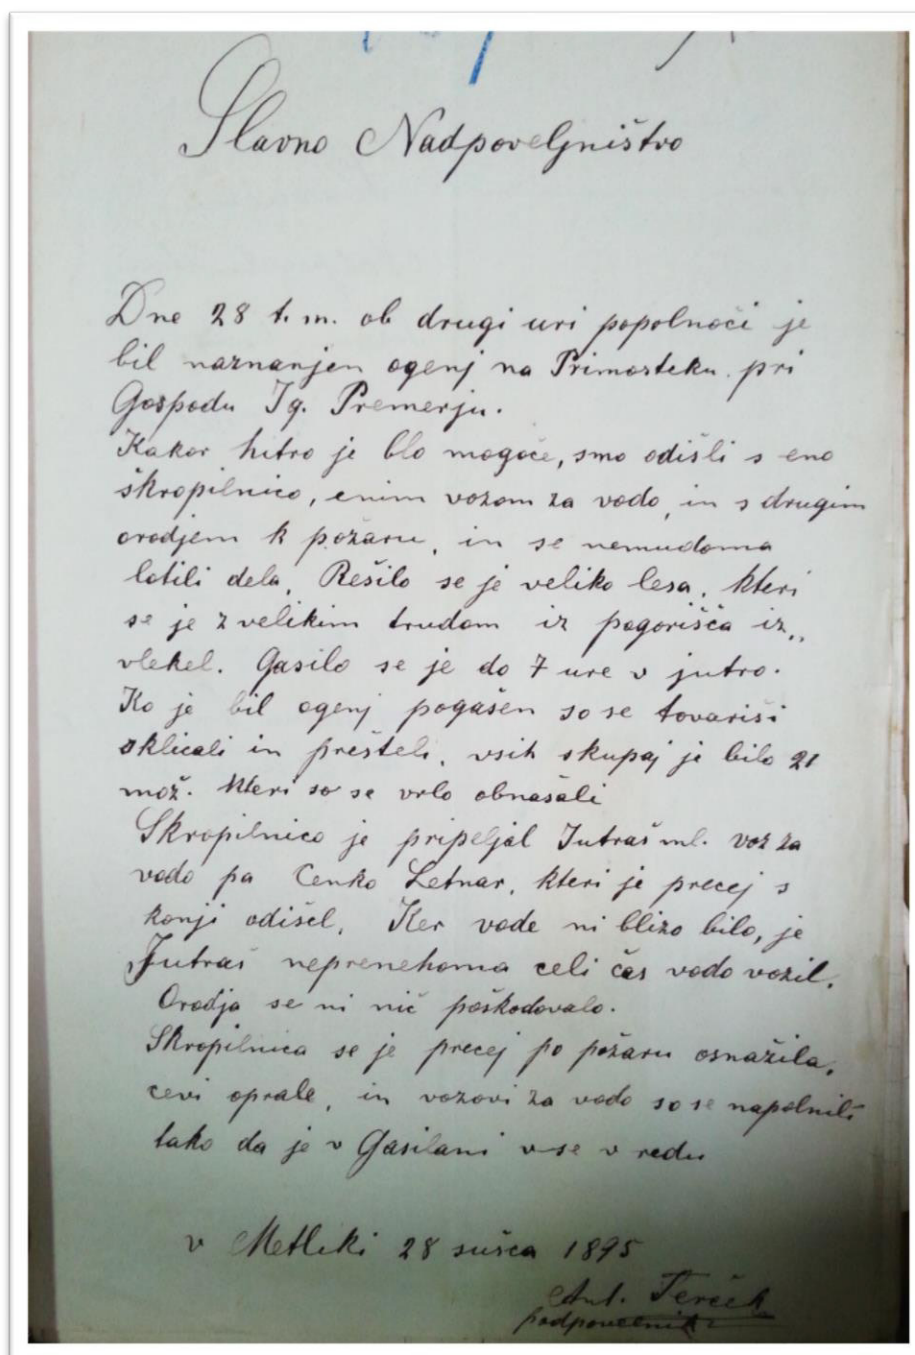 Slavno Nadpoveljništvo
Dne 28 t. m. ob drugi uri popolnoči je
bil naznanjen ogenj na Primosteku pri
Gospodu Ig. Premerju.
Kakor hitro je blo mogoče, smo odišli s eno
škropilnico, enim vozom za vodo, in s drugim
orodjem k požaru, in se nemudoma
lotili dela, Rešilo se je veliko lesa, kteri
se je z velikim trudom iz pogorišča iz„
vlekel. Gasilo se je do 7 ure v jutro.
Ko je bil ogenj pogašen so se tovariši
sklicali in prešteli, vsih skupaj je bilo 21
mož. kteri so se vrlo obnašali
Skropilnico je pripeljal Jutraš ml. voz za
vodo pa Cenko Letnar, kteri je precej s
konji odišel, Ker vode ni blizo bilo, je
Jutraš neprenehoma celi čas vodo vozil.
Orodja se ni nič poškodovalo.
Skropilnica se je precej po požaru osnažila,
cevi oprale, in vozovi za vodo so se napolnili
tako da je v Gasilani v-se v redu
v Metliki 28 sušca 1895
Ant.